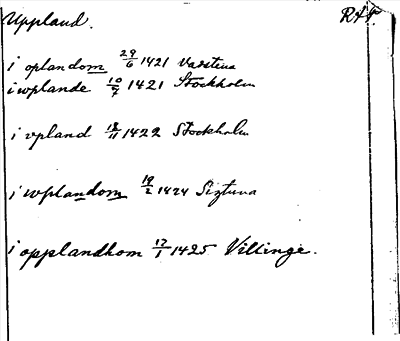 Uppland. RAP.
i oplandom 29/6 1421 Vastena
i wplande 10/7 1421 Stockholm
i vpland 18/11 1422 Stockholm
i wplandom 19/2 1424 Sigtuna
i opplandhom 17/1 1425 Villinge.